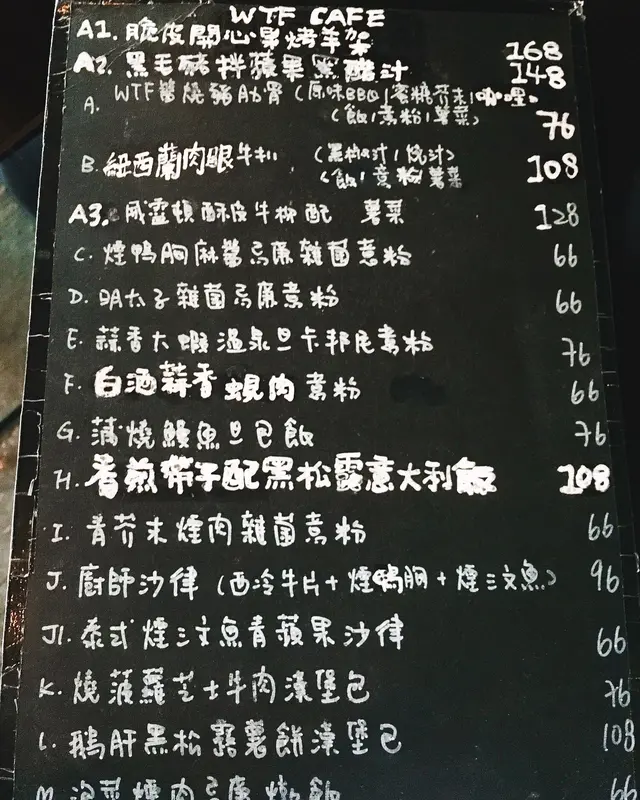 WTF CAFE
A1. 脆皮開心果烤羊架 168
A2. 黑毛豬拌蘋果黑醋汁 148
A. WTF醬燒豬肋骨 (原味BBQ/蜜糖芥末/咖喱)
(飯/意粉/薯菜) 76
B. 紐西蘭肉眼牛扒 (黑椒汁/燒汁) 108
(飯/意粉/薯菜)
A3. 威靈頓酥皮牛柳配 薯菜 128
C. 煙鴨胸麻醬忌廉雜菌意粉 66
D. DA太子雜菌忌廉意粉 66
E. 蒜香大蝦溫泉旦卡邦尼意粉 76
F. 白酒蒜香蜆肉意粉 66
G. 蒲燒鰻魚旦包飯 76
H. 香煎帶子配黑松露意大利飯 108
I. 青芥末煙肉雜菌意粉 66
J. 廚師沙律 (西冷牛片+煙鴨胸+煙三文魚) 96
J1. 泰式煙三文魚青蘋果沙律 66
K. 燒菠蘿芝士牛肉漢堡包 76
L. 鵝肝黑松露薯餅漢堡包 108
M. 泡菜煙肉忌廉 飯 66